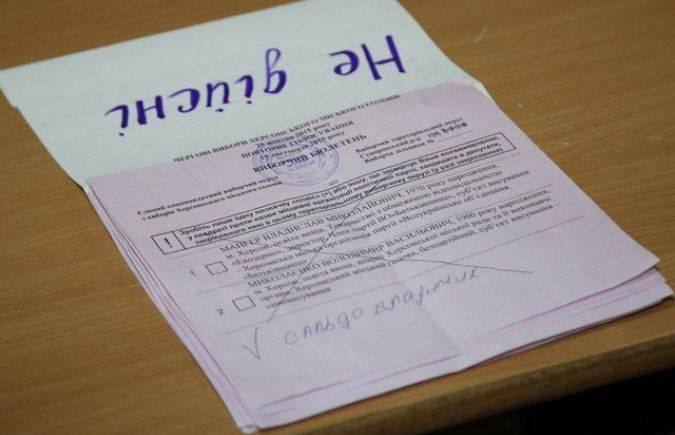 Не дійсні
ЧЕРГОВІ ВИБОРИ ХЕРСОНСЬКОГО МІСЬКОГО ГОЛОВИ
25 жовтня 2015 року
ПОВТОРНЕ ГОЛОСУВАННЯ
2015 року
ВИБОРЧИЙ БЮЛЕТЕНЬ
Єдиний одномандатний виборчий округ
з виборів Херсонського міського голови
Виборчий територіальний округ
Суворовський р-н
Виборча дільниця №
! Зробіть лише одну позначку «плюс» (+) або іншу, що засвідчує Ваше волевиявлення,
у квадраті проти назви місцевої організації політичної партії, кандидата в депутати,
закріпленого нею в цьому територіальному виборчому окрузі (у разі закріплення)
1 МАНГЕР ВЛАДИСЛАВ МИКОЛАЙОВИЧ, 1970 року народження,
м. Херсон, освіта вища, Товариство з обмеженою відповідальністю
директор, член партії ВО«Батьківщина», суб'єкт висування
-Херсонська міська організація партії «Всеукраїнське об'єднання
«Батьківщина»
2 МИКОЛАЄНКО ВОЛОДИМИР ВАСИЛЬОВИЧ, 1960 року народження,
м. Херсон, освіта вища, Херсонський міський голова, безпартійний, суб'єкт висування
самовисування
V сальдо владимир